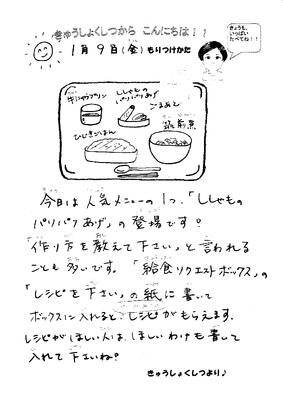 きゅうしょくしつから こんにちは！！
1月9日(金) もりつけかた
きょうも、
いっぱい
たべてね！！
牛にゅうプリン
ししゃもの
パリパリあげ
ごまあえ
ひじきごはん
筑前煮
今日は人気メニューの1つ、「ししゃもの
パリパリあげ」の登場です。
「作り方を教えて下さい」と言われる
ことも多いです。「給食リクエストボックス」の
「レシピを下さい」の紙に書いて
ボックスに入れると、レシピがもらえます。
レシピがほしい人は、ほしいわけも書いて
入れて下さいね。
きゅうしょくしつより♪